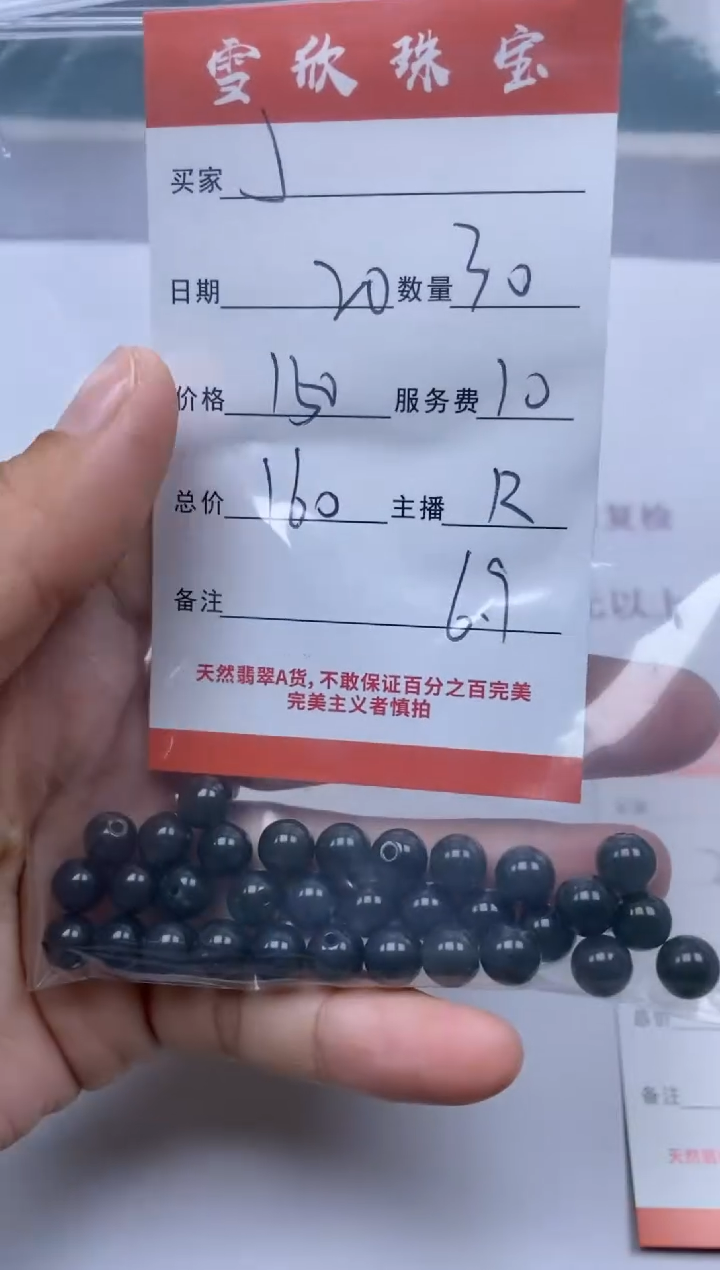 雪欣珠宝
买家 J
日期 20 数量 30
价格 150 服务费 10
总价 160 主播 R
备注 6.9
天然翡翠A货,不敢保证百分之百完美
完美主义者慎拍
复检
以上
备注
天然翡